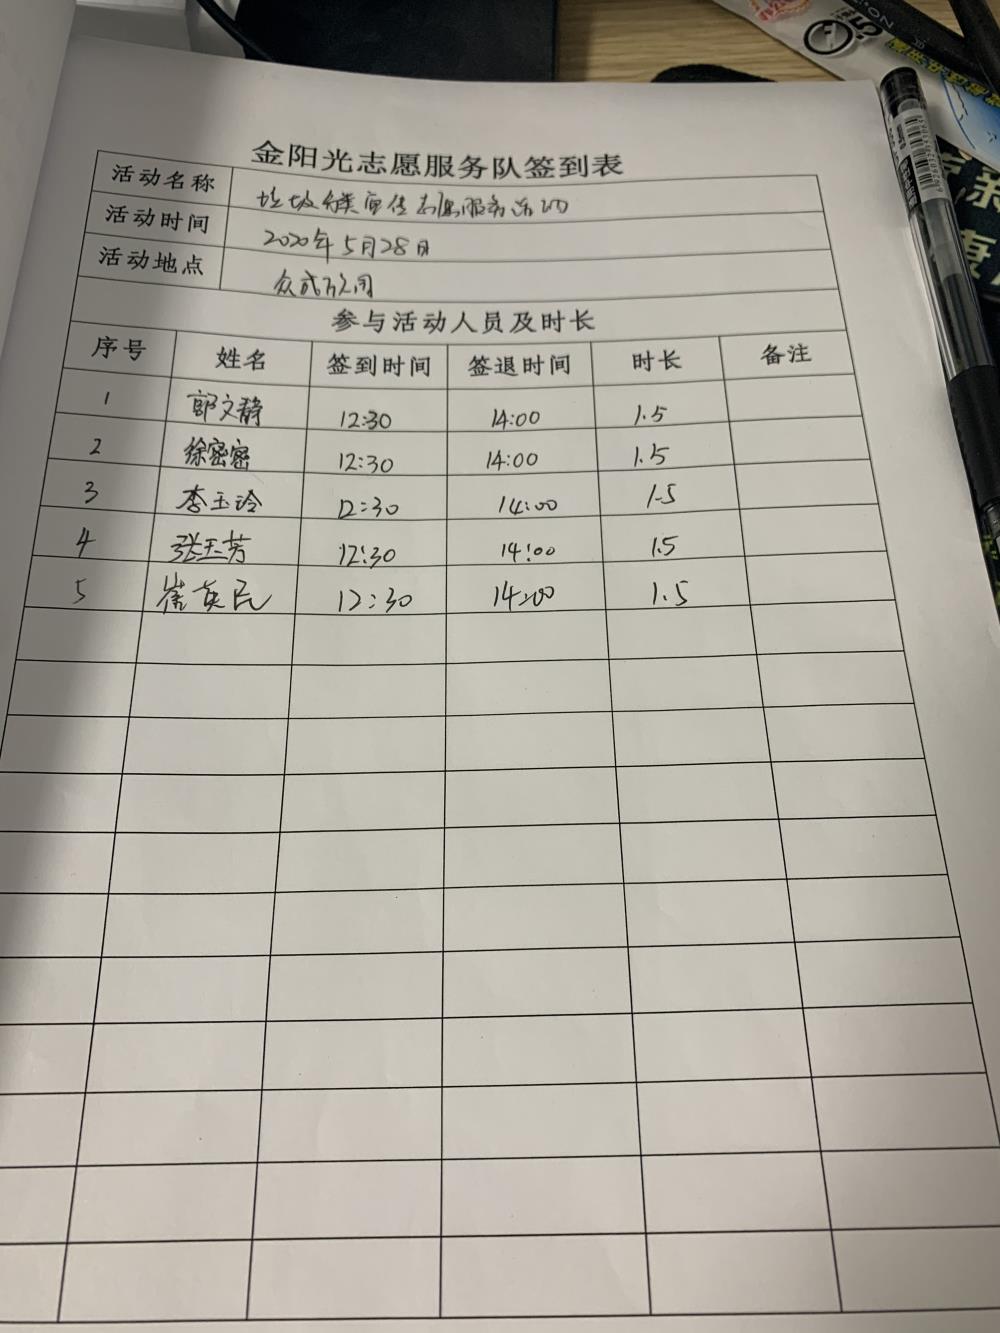 金阳光志愿服务队签到表
活动名称 垃圾分类宣传志愿服务活动
活动时间 2020年5月28日
活动地点 众成
参与活动人员及时长
序号 姓名 签到时间 签退时间 时长 备注
1 郭文静 12:30 14:00 1.5
2 徐密密 12:30 14:00 1.5
3 李玉玲 12:30 14:00 1.5
4 张玉芳 12:30 14:00 1.5
5 崔英民 12:30 14:00 1.5